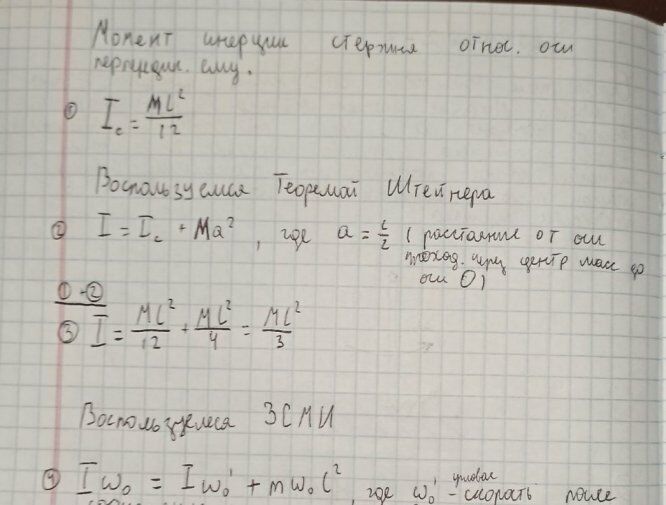 Момент инерции стержня относ. оси
перпендик. ему.
① I_c = ML²/12
Воспользуемся Теоремой Штейнера
② I = I_c + Ma², где a = L/2 ( расстояние от оси
проход. через центр масс до
оси O)
①→②
③ I = ML²/12 + ML²/4 = ML²/3
Воспользуемся ЗСМИ
④ Iω₀ = Iω₀' + mω₀L², где ω₀' - угловая скорость после